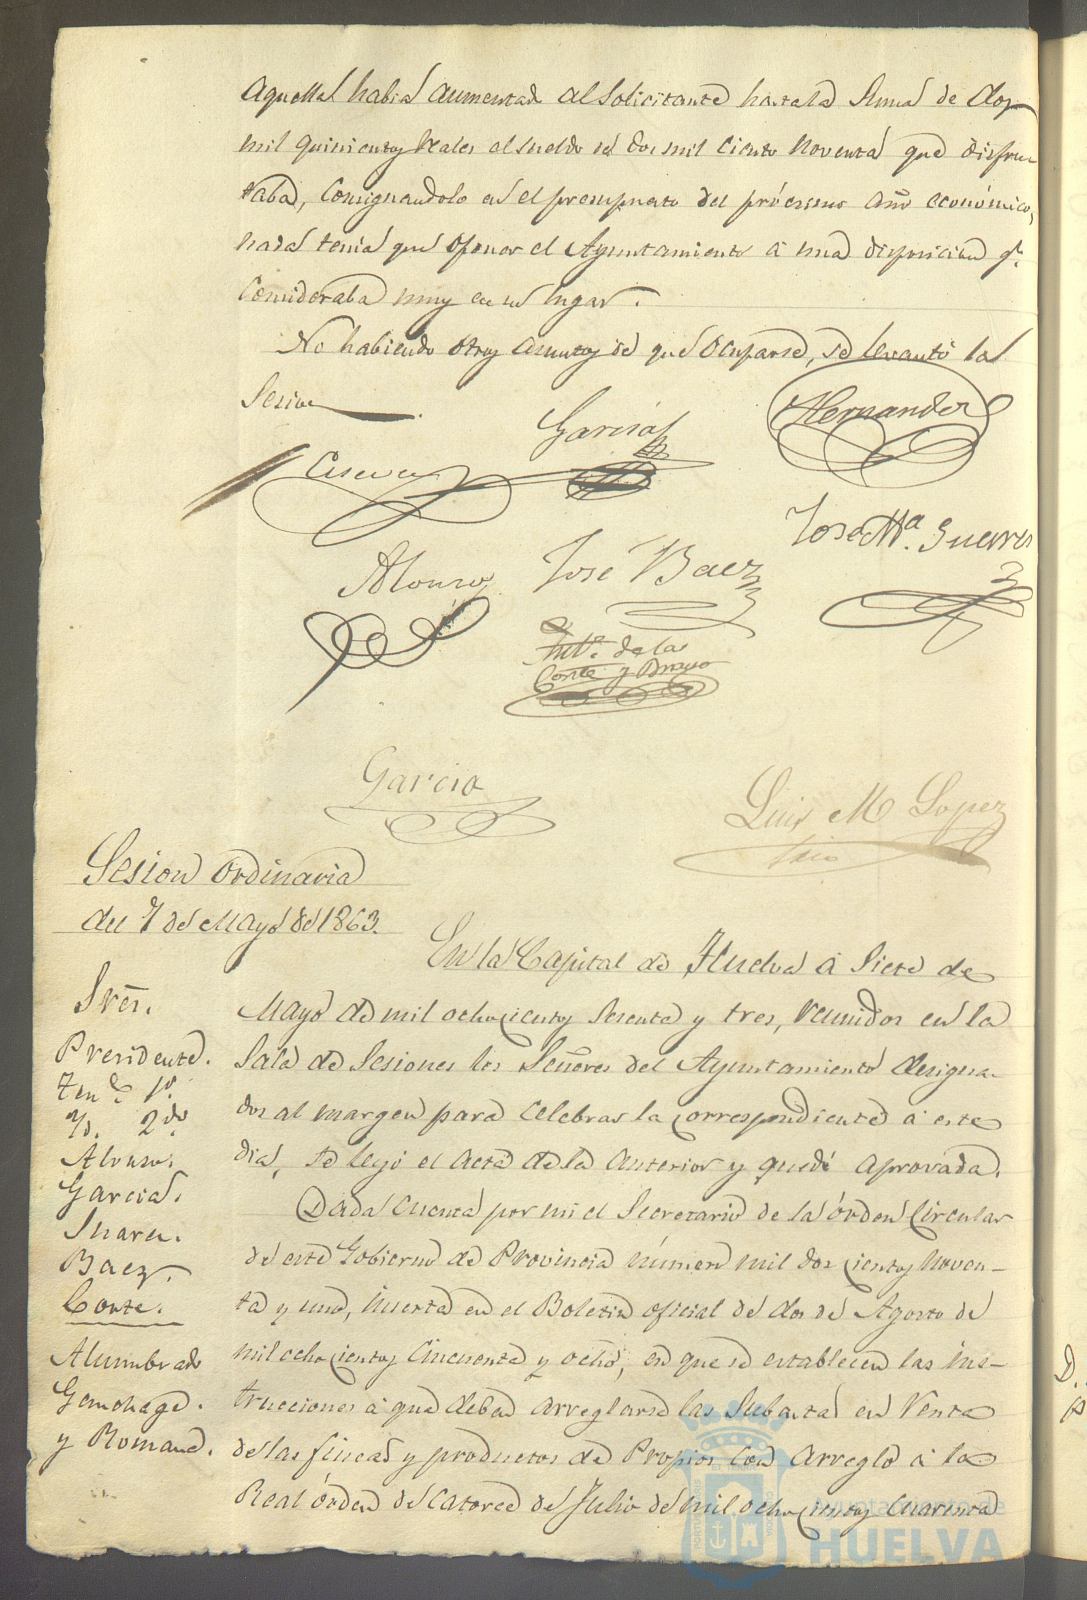 aquella habia aumentado al solicitante hasta la suma de dos
mil quinientos reales el sueldo de dos mil ciento noventa que disfru-
taba, consignandolo en el presupuesto del prócsimo año económico,
nada tenia que oponer el Ayuntamiento á una disposicion qe.
consideraba muy en su lugar.
No habiendo otros asuntos de que ocuparse, se levantó la
Sesion
Garcia
Hernandez
José Mª. Guerrero
Alonso
José Baez
Antº. de la
Corte y Bravo
Garcia
Luis M Lopez
Srio
Sesion ordinaria
del 7 de Mayo de 1863.
Sres.
Presidente.
Tente. 1º.
Yd. 2do.
Alonso.
Garcia.
Suarez.
Baez.
Corte.
Alumbrado
y Romano.
En la Capital de Huelva á siete de
Mayo de mil ochocientos sesenta y tres, reunidos en la
Sala de Sesiones los Señores del Ayuntamiento designa-
dos al margen para celebrar la correspondiente á este
dia, se leyó el acta de la anterior y quedó aprovada.
Dada cuenta por mi el Secretario de la órden circular
de este Gobierno de Provincia número mil doscientos noven-
ta y uno, inserta en el Boletin oficial de dos de Agosto de
mil ochocientos cincuenta y ocho, en que se establecen las ins-
trucciones á que deban arreglarse las subastas en venta
de las fincas y productos de Propios con arreglo á la
Real órden de catorce de Julio de mil ochocientos cuarenta
D.
p
Ayuntamiento de
HUELVA